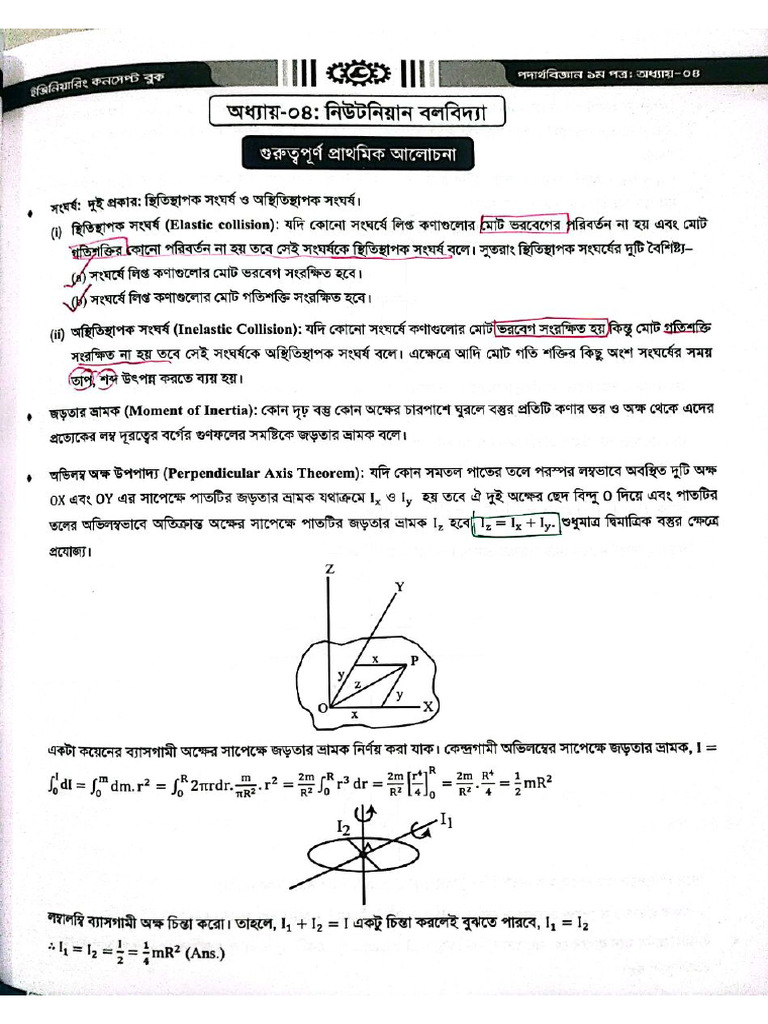 ইঞ্জিনিয়ারিং কনসেপ্ট বুক
পদার্থবিজ্ঞান ১ম পত্র: অধ্যায়-০৪
অধ্যায়-০৪: নিউটনিয়ান বলবিদ্যা
গুরুত্বপূর্ণ প্রাথমিক আলোচনা
• সংঘর্ষ: দুই প্রকার: স্থিতিস্থাপক সংঘর্ষ ও অস্থিতিস্থাপক সংঘর্ষ।
(i) স্থিতিস্থাপক সংঘর্ষ (Elastic collision): যদি কোনো সংঘর্ষে লিপ্ত কণাগুলোর মোট ভরবেগের পরিবর্তন না হয় এবং মোট
গতিশক্তির কোনো পরিবর্তন না হয় তবে সেই সংঘর্ষকে স্থিতিস্থাপক সংঘর্ষ বলে। সুতরাং স্থিতিস্থাপক সংঘর্ষের দুটি বৈশিষ্ট্য–
(a) সংঘর্ষে লিপ্ত কণাগুলোর মোট ভরবেগ সংরক্ষিত হবে।
(b) সংঘর্ষে লিপ্ত কণাগুলোর মোট গতিশক্তি সংরক্ষিত হবে।
(ii) অস্থিতিস্থাপক সংঘর্ষ (Inelastic Collision): যদি কোনো সংঘর্ষে কণাগুলোর মোট ভরবেগ সংরক্ষিত হয় কিন্তু মোট গতিশক্তি
সংরক্ষিত না হয় তবে সেই সংঘর্ষকে অস্থিতিস্থাপক সংঘর্ষ বলে। এক্ষেত্রে আদি মোট গতি শক্তির কিছু অংশ সংঘর্ষের সময়
তাপ, শব্দ উৎপন্ন করতে ব্যয় হয়।
• জড়তার ভ্রামক (Moment of Inertia): কোন দৃঢ় বস্তু কোন অক্ষের চারপাশে ঘুরলে বস্তুর প্রতিটি কণার ভর ও অক্ষ থেকে এদের
প্রত্যেকের লম্ব দূরত্বের বর্গের গুণফলের সমষ্টিকে জড়তার ভ্রামক বলে।
• অভিলম্ব অক্ষ উপপাদ্য (Perpendicular Axis Theorem): যদি কোন সমতল পাতের তলে পরস্পর লম্বভাবে অবস্থিত দুটি অক্ষ
OX এবং OY এর সাপেক্ষে পাতটির জড়তার ভ্রামক যথাক্রমে Iₓ ও I_y হয় তবে ঐ দুই অক্ষের ছেদ বিন্দু O দিয়ে এবং পাতটির
তলের অভিলম্বভাবে অতিক্রান্ত অক্ষের সাপেক্ষে পাতটির জড়তার ভ্রামক I_z হবে, I_z = Iₓ + I_y. শুধুমাত্র দ্বিমাত্রিক বস্তুর ক্ষেত্রে
প্রযোজ্য।
Z
Y
x
P
y
z
y
O
x
X
একটা কয়েনের ব্যাসগামী অক্ষের সাপেক্ষে জড়তার ভ্রামক নির্ণয় করা যাক। কেন্দ্রগামী অভিলম্বের সাপেক্ষে জড়তার ভ্রামক, I =
∫₀ᴵ dI = ∫₀ᵐ dm. r² = ∫₀ᴿ 2πrdr. m/πR². r² = 2m/R² ∫₀ᴿ r³ dr = 2m/R² [r⁴/4]₀ᴿ = 2m/R². R⁴/4 = 1/2 mR²
I₂
I₁
লম্বালম্বি ব্যাসগামী অক্ষ চিন্তা করো। তাহলে, I₁ + I₂ = I একটু চিন্তা করলেই বুঝতে পারবে, I₁ = I₂
∴ I₁ = I₂ = I/2 = 1/4 mR² (Ans.)